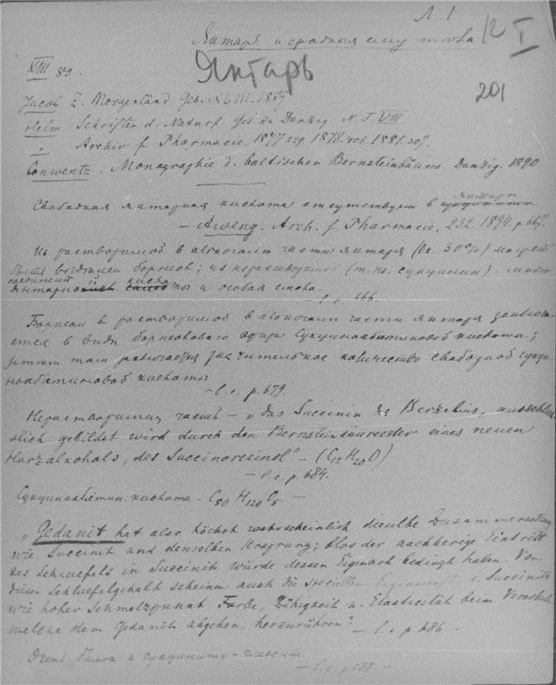 Л. 1
Янтарь и сродныя ему тѣла
I
XIII 89.
Янтарь
201
Jacob Z. Morgenland. Ges. 1889
Helm Schriften d. Naturf. Ges. zu Danzig N. F. VIII
" Archiv f Pharmacie, 1877 1878. 1881. 307.
Conwentz. Monographie d. baltischen Bernsteinbäume. Danzig. 1890
Свободная янтарная кислота отсутствует в янтаре
– Aweng. Arch. f. Pharmacie, 232. 1894. p. 667.
Из растворимой в алкоголи части янтаря (ок. 30%) может
быть выделен борнеол; из нерастворимой (т. н. сукцинин) –
янтарно кислота и особая смола.
l. c. 666.
Борнеол в растворимой в алкоголи части янтаря
ется в виде борнеоловаго эфира сукциноабиетиновой кислоты;
затем там значительное количество свободной сукци
ноабиетиновой кислоты
– l. c. p. 679.
Нерастворимая часть – "das Succinin des Berzelius, ausschliess
slich gebildet wird durch den Bernsteinsäureester eines neuen
Harzalkohols, des Succinoresinol" – (C12 H20 O)
– l. c. p. 684.
Сукциноабиетин. кислота – C80 H120 O5 –
"Gedanit hat also höchst wahrscheinlich dieselbe Zusammensetzung
wie Succinit und denselben Ursprung; blos der nachherige Eintritt
des Schwefels in Succinit würde dessen Eigenart bedingt haben. Von
diesem Schwefelgehalt scheinen auch die speciellen Eigenschaften d. Succinits
wie hoher Schmelzpunkt Farbe, Zähigkeit u. Elasticität beim
welche dem Gedanit abgehen, herzurühren" – l. c. p. 686 –
к сукциниту –
– l. c. p.